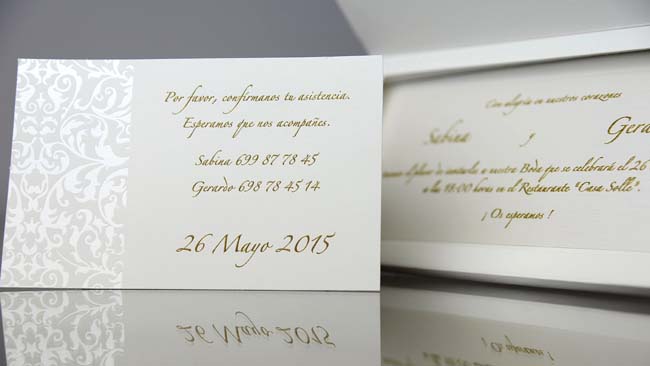 Por favor, confirmanos tu asistencia.
Esperamos que nos acompañes.
Sabina 699 87 78 45
Gerardo 698 78 45 14
26 Mayo 2015
Con alegría en nuestros corazones
Sabina y Gera
el placer de invitarle a nuestra Boda que se celebrará el 26
a las 18:00 horas en el Restaurante "Casa Solle".
¡Os esperamos!